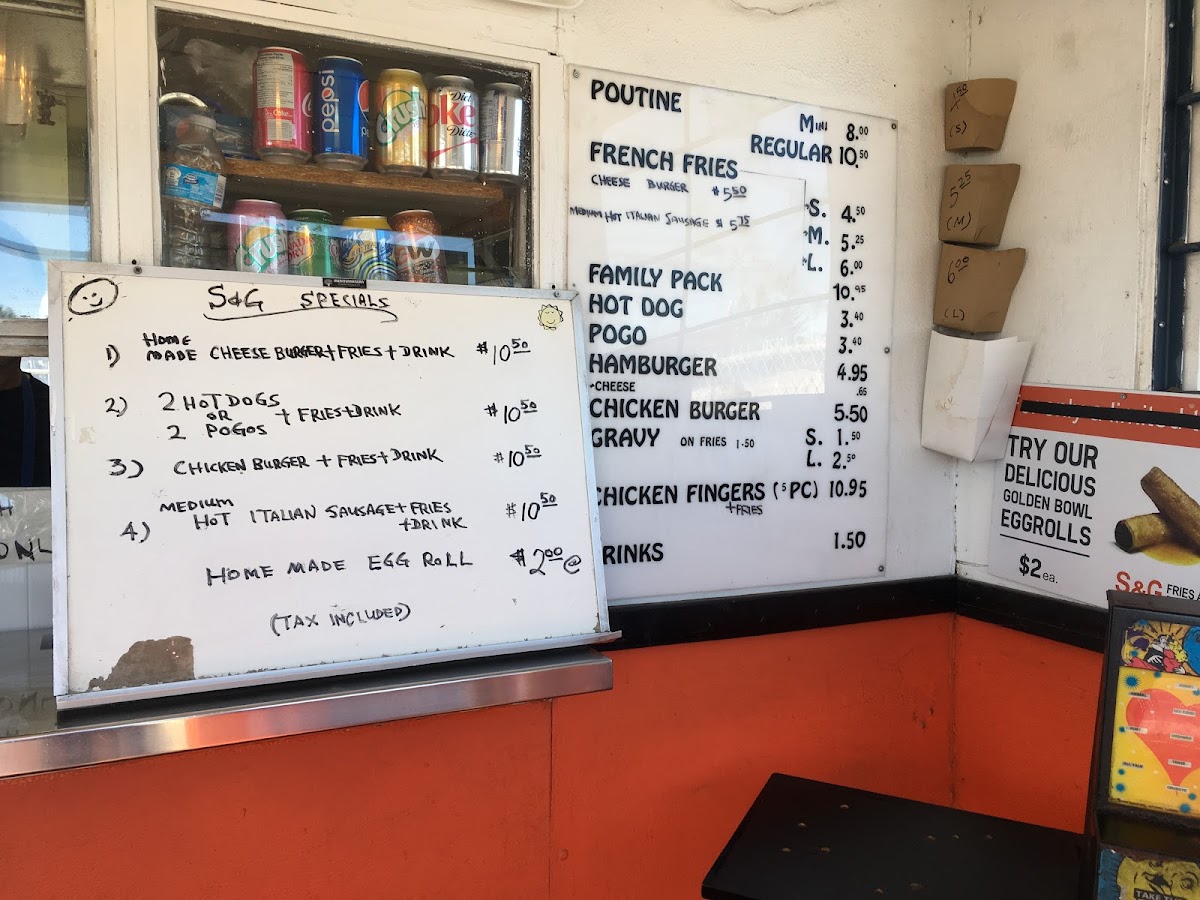 pepsi
Crush
Diet
Coke
Crush
S&G SPECIALS
1) HOME
MADE CHEESE BURGER + FRIES + DRINK $10.50
2) 2 HOT DOGS
OR + FRIES + DRINK $10.50
2 POGOS
3) CHICKEN BURGER + FRIES + DRINK $10.50
MEDIUM
4) HOT ITALIAN SAUSAGE + FRIES $10.50
+ DRINK
HOME MADE EGG ROLL $2.00 @
(TAX INCLUDED)
POUTINE
MINI 8.00
REGULAR 10.50
FRENCH FRIES
CHEESE BURGER $5.50
S. 4.50
MEDIUM HOT ITALIAN SAUSAGE $5.75
M. 5.25
L. 6.00
FAMILY PACK 10.95
HOT DOG 3.40
POGO 3.40
HAMBURGER 4.95
CHEESE .65
CHICKEN BURGER 5.50
GRAVY ON FRIES 1.50 S. 1.50
L. 2.50
CHICKEN FINGERS (5 PC) 10.95
+ FRIES
RINKS 1.50
4.50
(S)
5.25
(M)
6.00
(L)
TRY OUR
DELICIOUS
GOLDEN BOWL
EGGROLLS
$2 ea.
S&G FRIES